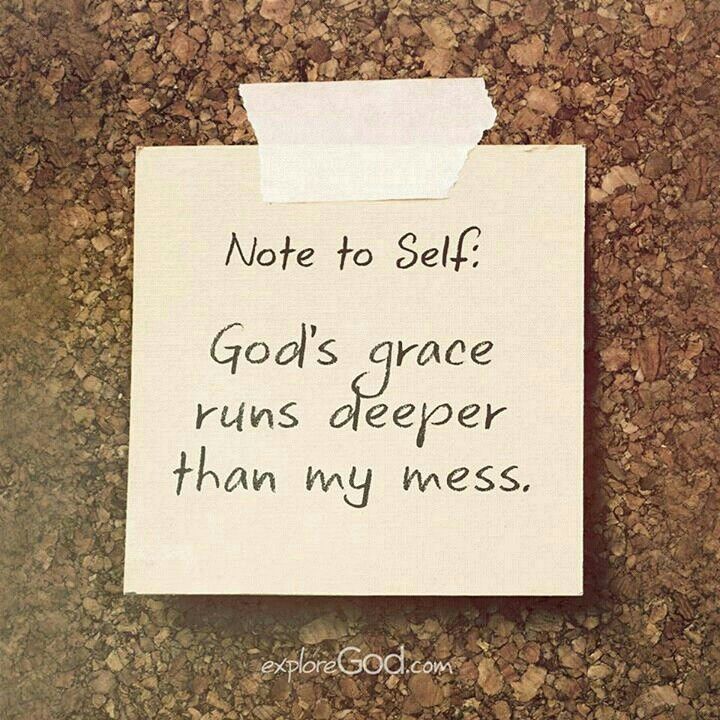 Note to Self:
God's grace
runs deeper
than my mess.
exploreGod.com